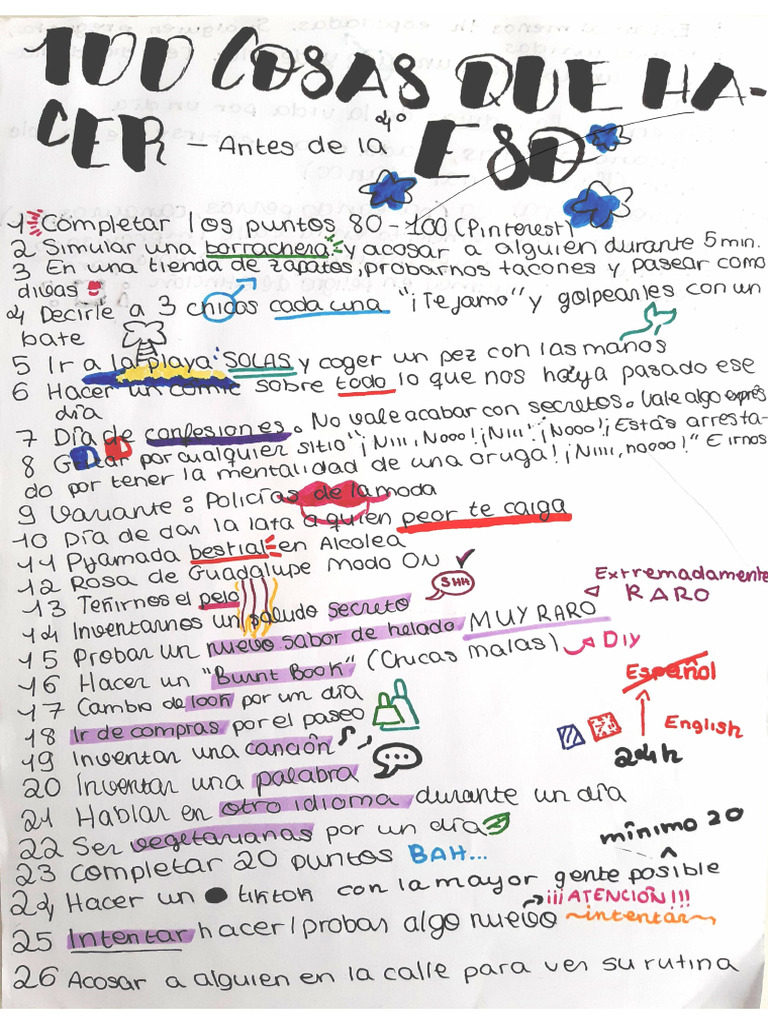 100 COSAS QUE HA-
CER - Antes de la 4º ESO
1 Completar los puntos 80-100 (Pinterest)
2 Simular una borrachera y acosar a alguien durante 5 min.
3 En una tienda de zapatos, probarnos tacones y pasear como
divas
4 Decirle a 3 chicos cada una "¡Te jamo" y golpearles con un
bate
5 Ir a la playa SOLAS y coger un pez con las manos
6 Hacer un comic sobre todo lo que nos haya pasado ese
día
7 Día de confesiones. No vale acabar con secretos. Vale algo exprés
8 Gritar por cualquier sitio "¡Niii, Nooo! ¡Niii! ¡Nooo! ¡Estás arresta-
do por tener la mentalidad de una oruga! ¡Niiii, noooo!" E irnos
9 Variante: Policías de la moda
10 Día de dar la lata a quien peor te caiga
11 Pyjamada bestial en Alcolea
12 Rosa de Guadalupe Modo ON
13 Teñirnos el pelo
SHH
14 Inventarnos un saludo secreto
Extremadamente
RARO
15 Probar un nuevo sabor de helado MUY RARO
16 Hacer un "Burnt Book" (Chicas malas) Diy
17 Cambio de look por un día
Español
18 Ir de compras por el paseo
English
24h
19 Inventar una canción
20 Inventar una palabra
21 Hablar en otro idioma durante un día
22 Ser vegetarianas por un día
mínimo 20
23 Completar 20 puntos BAH...
24 Hacer un tiktok con la mayor gente posible
¡¡¡ATENCIÓN!!!
25 Intentar hacer/probar algo nuevo ~intentar~
26 Acosar a alguien en la calle para ver su rutina